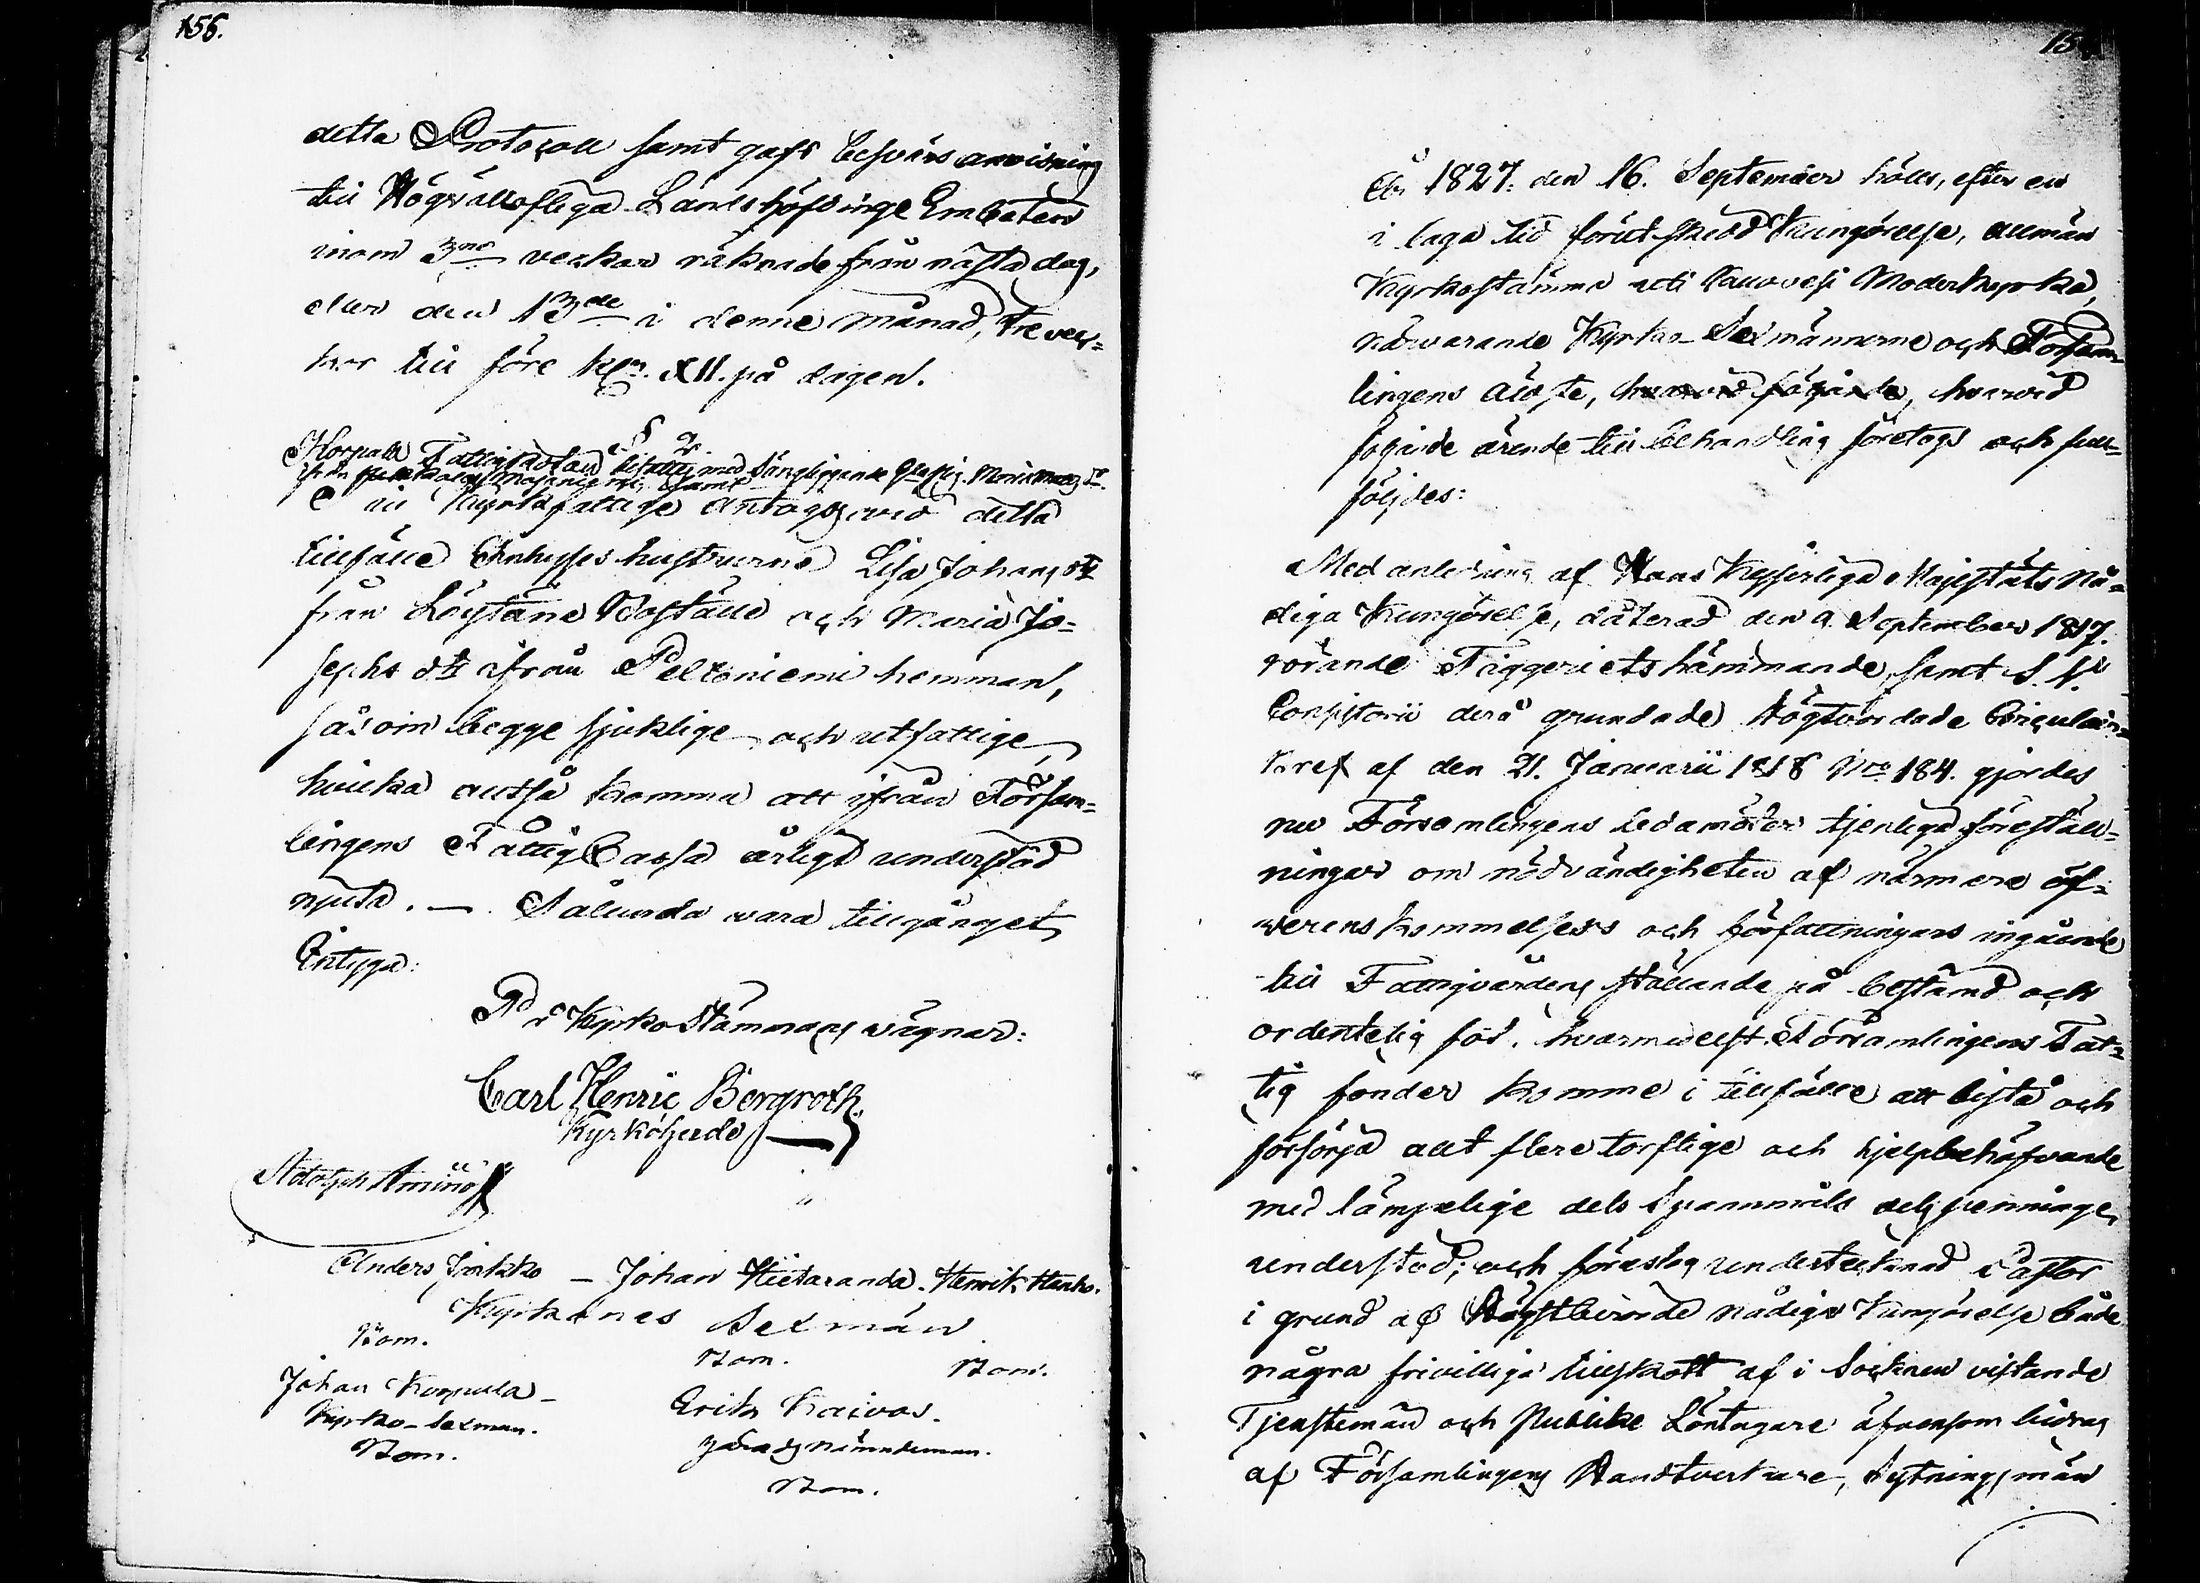 156.
detta Protocoll samt gafs besvärs anvisning
till Högvällofliga Landshöfdinge Embeten
inom 3ne veckor räknade från nästa dag,
eller den 13de i denne månad, tre vec=
kor till före kln. XII. på dagen.
§ 2.
Korpula Fattigstad
Till Kyrkofattige antogs wid detta
tillfälle Enhyses hustrurne Lisa Johansdtr
från Löytäne Boställe och Maria Jo=
sephs dtr ifrån Peltoniemi hemman,
såsom begge sjuklige och utfattige,
hvilka altså komma att ifrån Försam=
lingens Fattig Cassa årligt understöd
njuta. — Sålunda vara tillgånget,
Intyga:
På Kyrko Stämmans wägnar:
Carl Henric Bergroth.
Kyrkoherde
Adolph Aminoff
Anders Jirkko — Johan Hietaranda. Henrik Hanho.
Kyrkones Sexmän.
Bom. Bom. Bom.
Johan Korpula — Erik Kaivos.
Kyrko-Sexman. Härads Nämndeman.
Bom. Bom.
15
År 1827. den 16. September hölls, efter en
i laga tid förut skedd Kungörelse, allmän
Kyrkostämma uti Kauvvesi Moderkyrka,
närwarande Kyrko-Sexmännerne och Försam=
lingens Äldste, hvarvid följande, hvarvid
följande ärende till behandling företogs och full=
följdes:
Med anledning af Hans Kejserliga Majestäts Nå=
diga Kungörelse, daterad den 9 September 1817.
rörande Tiggeriets hämmande, samt S. V.
Consistorii derå grundade Högtvördade Circulair=
bref af den 21. Januarii 1818 No 184. gjordes
nu Församlingens Ledamöter tjenliga föreställ=
ningar om nödvändigheten af närmare öf=
verenskommelsers och författningars ingående
till Fattigvårdens ställande på bestämd och
ordentelig fot, hvarmedelst Församlingens Fat=
tig fonder komme i tillfälle att bistå och
försörja allt flere torftige och hjelpbehöfvande
med lämpelige dels Spannmåls dels penninge
understöd; och föreslog undertecknad Pastor
i grund af Högstberörde nådiga Kungörelse både
några frivilliga tillskott af i Socknen vistande
Tjenstemän och Publike Löntagare äfvensom bidrag
af Församlingens Handtverkare, Sytningsmän